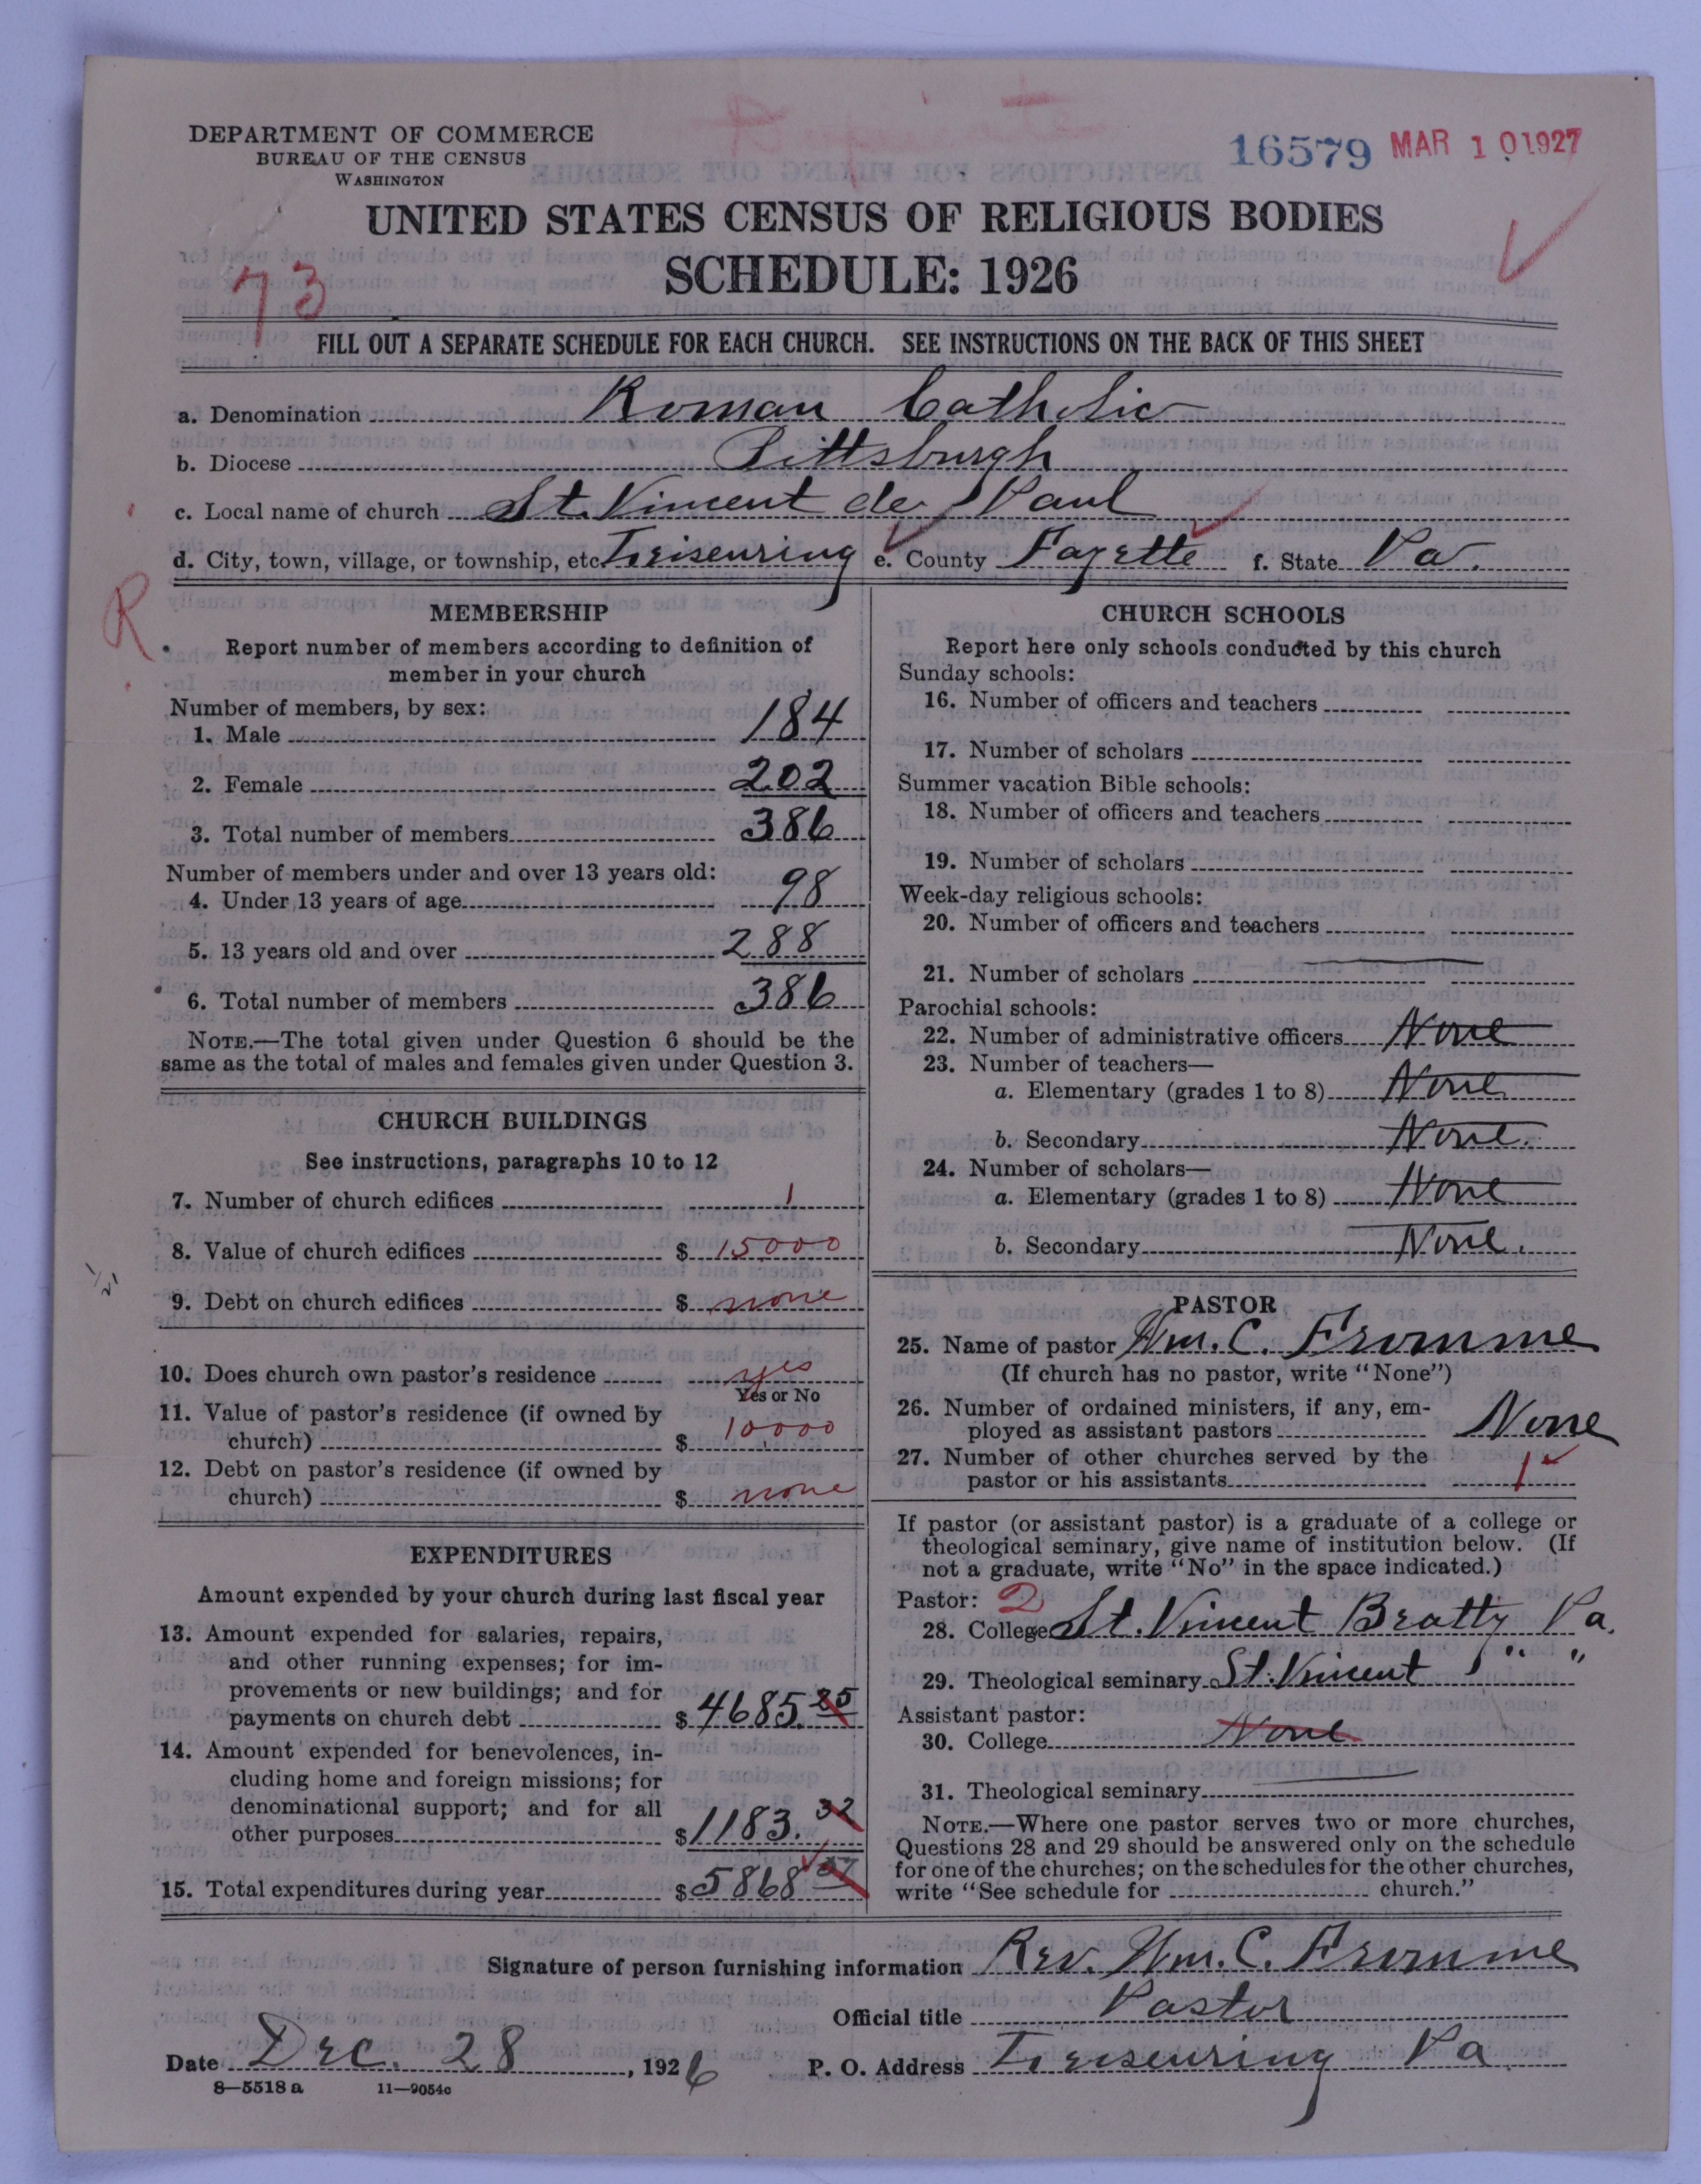 DEPARTMENT OF COMMERCE
BUREAU OF THE CENSUS
WASHINGTON
16579 MAR 10 1927
UNITED STATES CENSUS OF RELIGIOUS BODIES
SCHEDULE: 1926
73
FILL OUT A SEPARATE SCHEDULE FOR EACH CHURCH. SEE INSTRUCTIONS ON THE BACK OF THIS SHEET
a. Denomination Roman Catholic
b. Diocese Pittsburgh
c. Local name of church St. Vincent de Paul
d. City, town, village, or township, etc. Leisenring e. County Fayette f. State Pa.
R
MEMBERSHIP
Report number of members according to definition of
member in your church
Number of members, by sex:
1. Male 184
2. Female 202
3. Total number of members 386
Number of members under and over 13 years old:
4. Under 13 years of age 98
5. 13 years old and over 288
6. Total number of members 386
NOTE.—The total given under Question 6 should be the
same as the total of males and females given under Question 3.
CHURCH BUILDINGS
See instructions, paragraphs 10 to 12
7. Number of church edifices 1
8. Value of church edifices $ 15000
9. Debt on church edifices $ none
10. Does church own pastor's residence yes
Yes or No
11. Value of pastor's residence (if owned by
church) $ 10000
12. Debt on pastor's residence (if owned by
church) $ none
EXPENDITURES
Amount expended by your church during last fiscal year
13. Amount expended for salaries, repairs,
and other running expenses; for im-
provements or new buildings; and for
payments on church debt $ 4685.25
14. Amount expended for benevolences, in-
cluding home and foreign missions; for
denominational support; and for all
other purposes $ 1183.32
15. Total expenditures during year $ 5868 57
CHURCH SCHOOLS
Report here only schools conducted by this church
Sunday schools:
16. Number of officers and teachers
17. Number of scholars
Summer vacation Bible schools:
18. Number of officers and teachers
19. Number of scholars
Week-day religious schools:
20. Number of officers and teachers
21. Number of scholars
Parochial schools:
22. Number of administrative officers None
23. Number of teachers—
a. Elementary (grades 1 to 8) None
b. Secondary None.
24. Number of scholars—
a. Elementary (grades 1 to 8) None
b. Secondary None.
PASTOR
25. Name of pastor Wm. C. Fromme
(If church has no pastor, write "None")
26. Number of ordained ministers, if any, em-
ployed as assistant pastors None
27. Number of other churches served by the
pastor or his assistants 1
If pastor (or assistant pastor) is a graduate of a college or
theological seminary, give name of institution below. (If
not a graduate, write "No" in the space indicated.)
Pastor: 2
28. College St. Vincent Beatty Pa.
29. Theological seminary St. Vincent " "
Assistant pastor:
30. College None
31. Theological seminary
NOTE.—Where one pastor serves two or more churches,
Questions 28 and 29 should be answered only on the schedule
for one of the churches; on the schedules for the other churches,
write "See schedule for church."
Signature of person furnishing information Rev. Wm. C. Fromme
Official title Pastor
Date Dec. 28, 1926 P. O. Address Leisenring Pa
8—5518 a 11—9054c